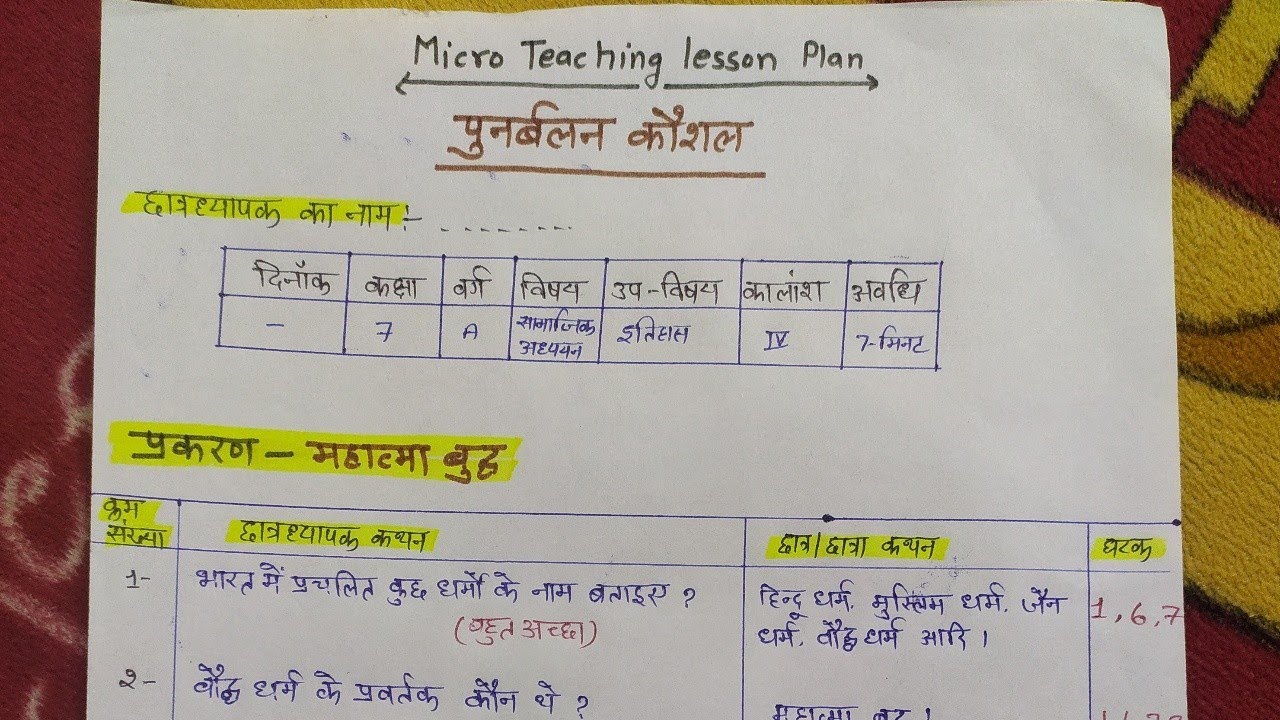 Micro Teaching lesson Plan
पुनर्बलन कौशल
छात्रध्यापक का नाम :- .........
दिनाँक कक्षा वर्ग विषय उप-विषय कालांश अवधि
- 7 A सामाजिक अध्ययन इतिहास IV 7-मिनट
प्रकरण - महात्मा बुद्ध
क्रम संख्या छात्रध्यापक कथन छात्र/छात्रा कथन घटक
1- भारत में प्रचलित कुछ धर्मों के नाम बताइए ? हिन्दू धर्म, मुस्लिम धर्म, जैन
(बहुत अच्छा) धर्म, बौद्ध धर्म आदि । 1, 6, 7
2- बौद्ध धर्म के प्रवर्तक कौन थे ?
महात्मा बुद्ध ।